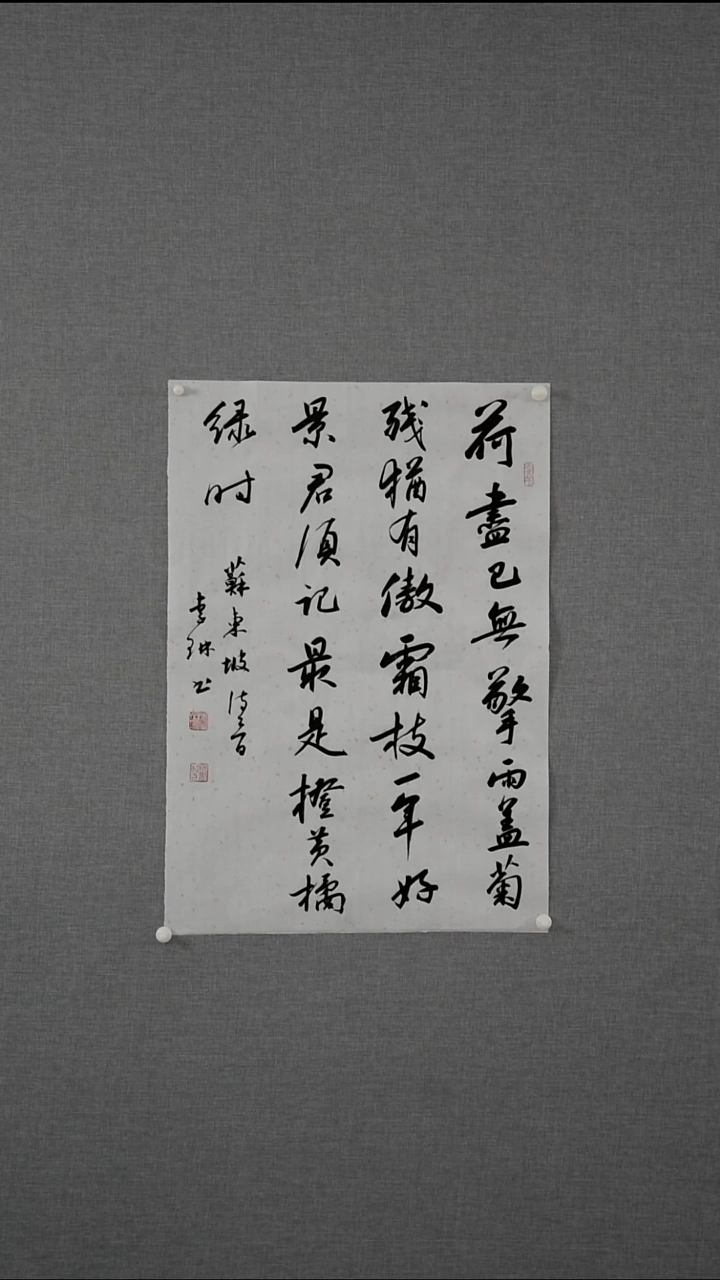 荷盡已無擎雨盖菊
残猶有傲霜枝一年好
景君須记最是橙黄橘
绿时
蘇東坡诗一首
李琳书